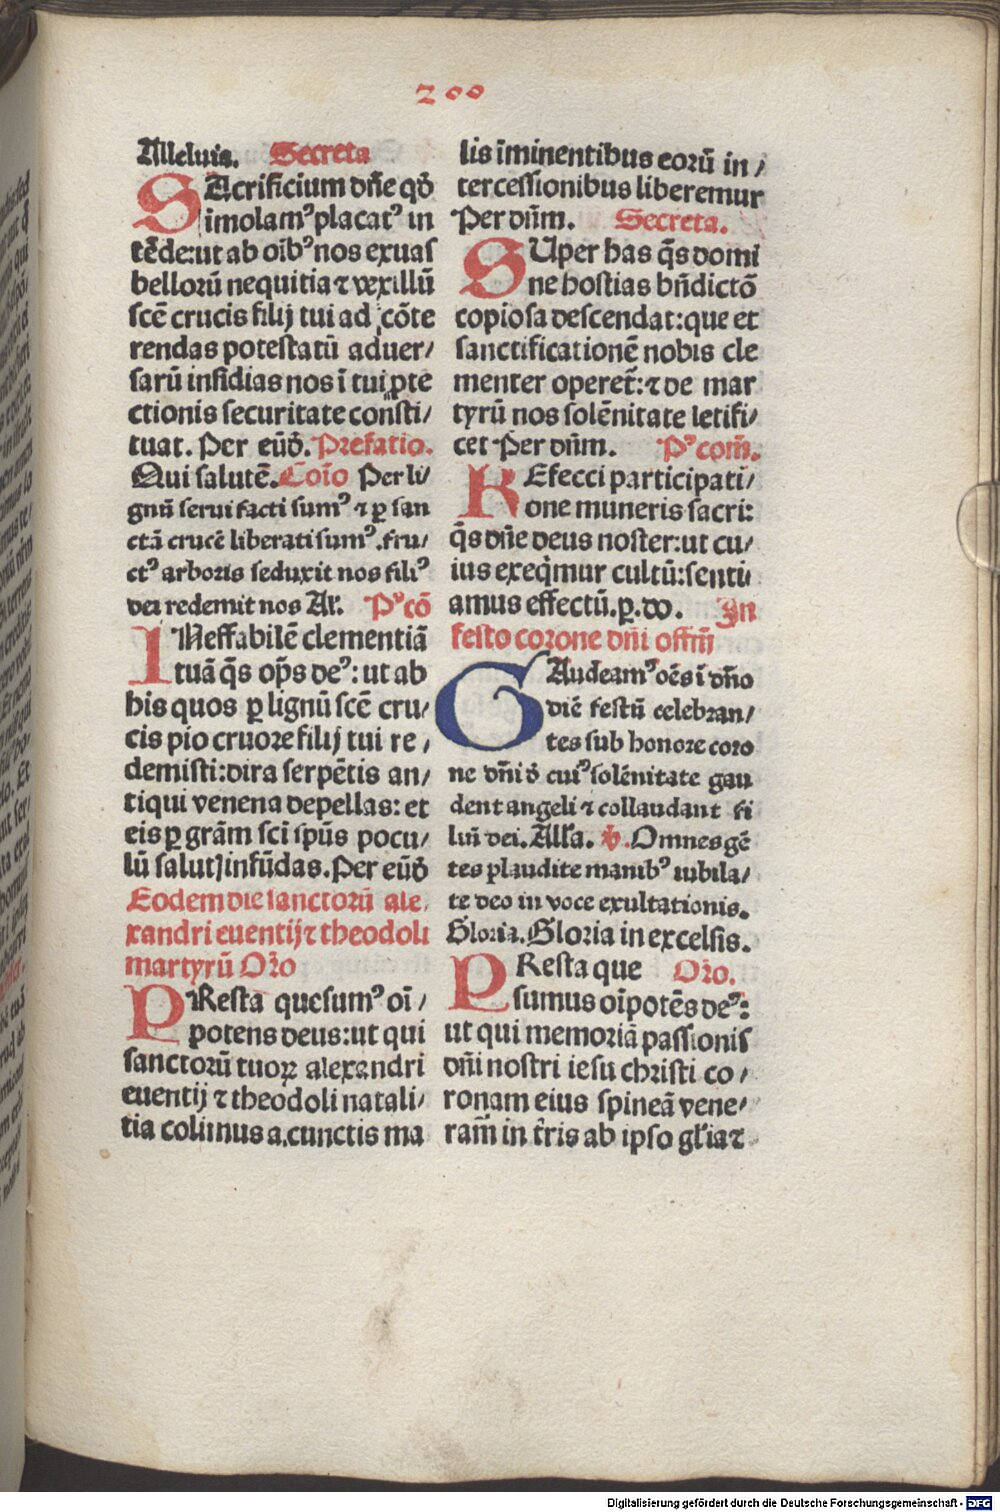 200
Alleluia. Secreta
SAcrificium dñe qđ
imolamꝰ placatꝰ in
tēde: ut ab oībꝰ nos exuas
bellorū nequitia ⁊ vexillū
scē crucis filij tui ad cōte
rendas potestatū aduer/
sarū insidias nos ī tui ꝓte
ctionis securitate consti/
tuat. Per eūđ. Prefatio.
Qui salutē. Coīo Per li/
gnū serui facti sumꝰ ⁊ ꝑ san
ctā crucē liberati sumꝰ. fru/
ctꝰ arboris seduxit nos filiꝰ
dei redemit nos Ar. Pꝰcō
INeffabilē clementiā
tuā q̄s op̄s deꝰ: ut ab
his quos ꝑ lignū scē cru/
cis pio cruore filij tui re/
demisti: dira serpētis an/
tiqui venena depellas: et
eis ꝑ grām sci spūs pocu/
lū salutꝭ infūdas. Per eūđ
Eodem die sanctorū ale/
xandri euentij ⁊ theodoli
martyrū Oro
PResta quesumꝰ oī/
potens deus: ut qui
sanctorū tuoꝝ alexandri
euentij ⁊ theodoli natali/
tia colimus a. cunctis ma
lis īminentibus eorū in/
tercessionibus liberemur
Per dn̄m. Secreta.
SUper has q̄s domi
ne hostias bn̄dictō
copiosa descendat: que et
sanctificationē nobis cle
menter operet̄: ⁊ de mar
tyrū nos solēnitate letifi/
cet Per dn̄m. Pꝰcom̄.
REfecci participati/
one muneris sacri:
q̄s dn̄e deus noster: ut cu/
ius exeq̄mur cultū: senti/
amus effectū. ꝑ. do. In
festo corone dn̄i offm̄
GAudeamꝰ oēs ī dn̄o
diē festū celebran/
tes sub honore coro
ne dn̄i đ cuiꝰ solēnitate gau
dent angeli ⁊ collaudant fi
liū dei. Alla. ℣. Omnes gē
tes plaudite manibꝰ iubila/
te deo in voce exultationis.
Gloria. Gloria in excelsis.
PResta que Oro.
sumus oīpotēs deꝰ:
ut qui memoriā passionis
dn̄i nostri iesu christi co/
ronam eius spineā vene/
ram̄ in t̄ris ab ipso gl̄ia ⁊
Digitalisierung gefördert durch die Deutsche Forschungsgemeinschaft - DFG